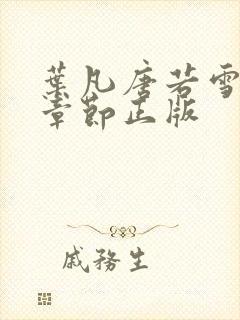 葉凡唐若雪
章節正版
戚務生